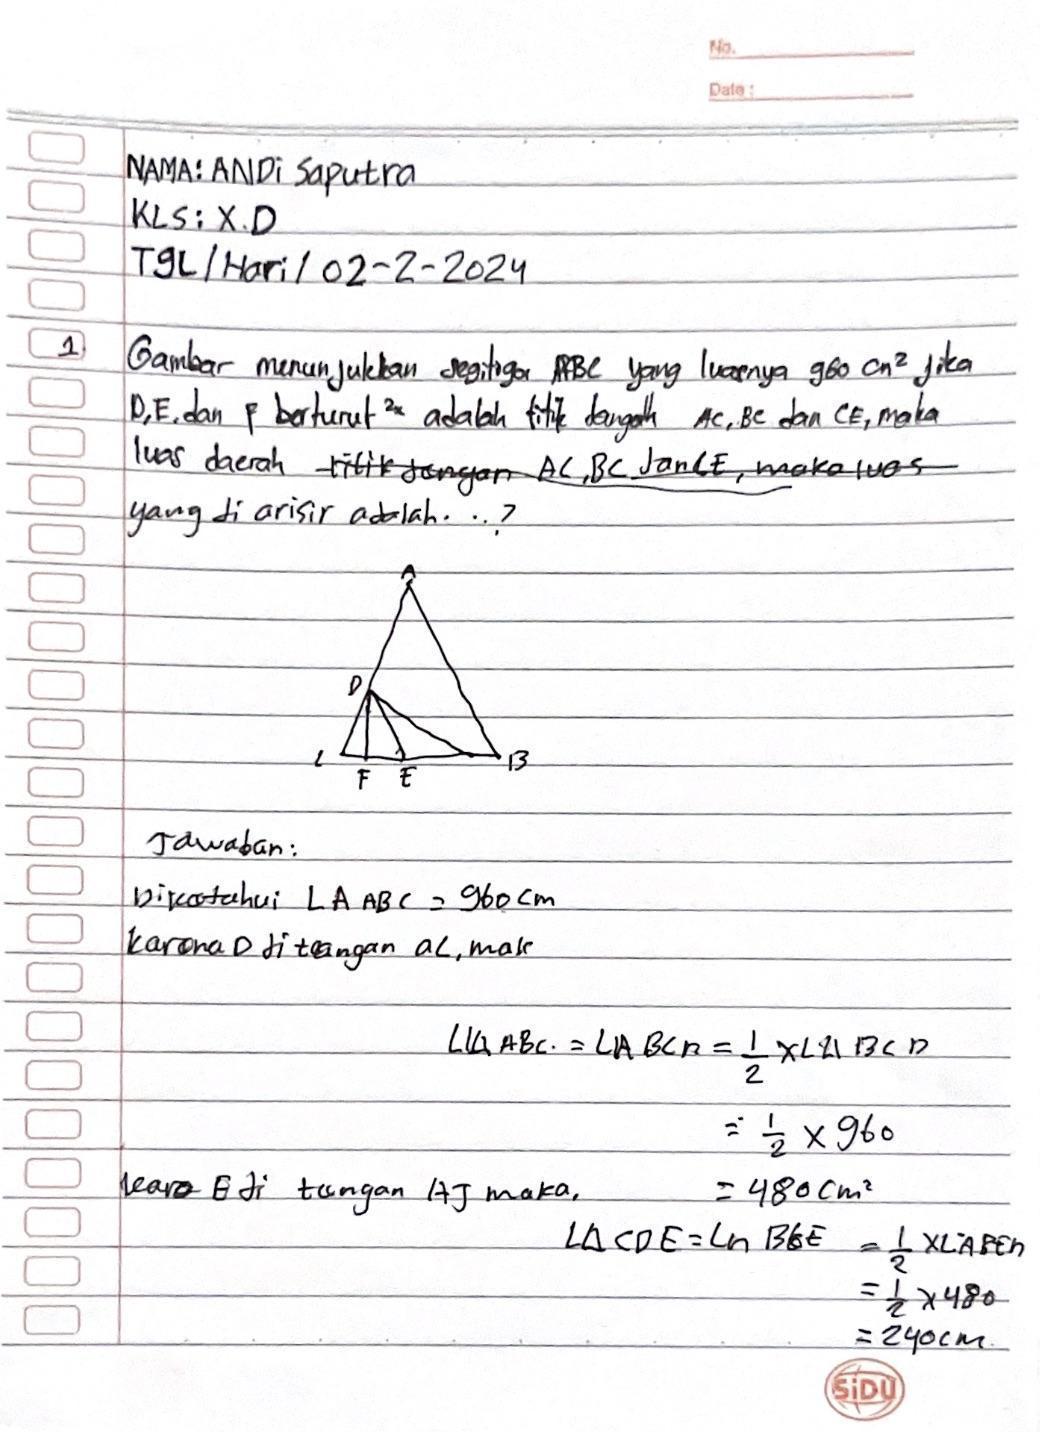 No.
Date :
NAMA: ANDi Saputra
KLS: X.D
TgL / Hari / 02-2-2024
1. Gambar menunjukkan segitiga ABC yang luasnya 960 cm² jika
D, E, dan F berturut ²ˣ adalah titik dangah AC, BC dan CE, maka
luas daerah titik tangan AC, BC dan CE, maka luas
yang di arisir adalah. . . ?
A
D
L F E B
Jawaban:
Dikatahui LA ABC = 960 cm
Karena D di tangan aL, mak
ABC. = LA BCD = 1/2 x L BCD
= 1/2 x 960
E di tangan maka, = 480 cm²
LΔ CDE = = 1/2 x
= 1/2 x 480
= 240 cm.
SiDU